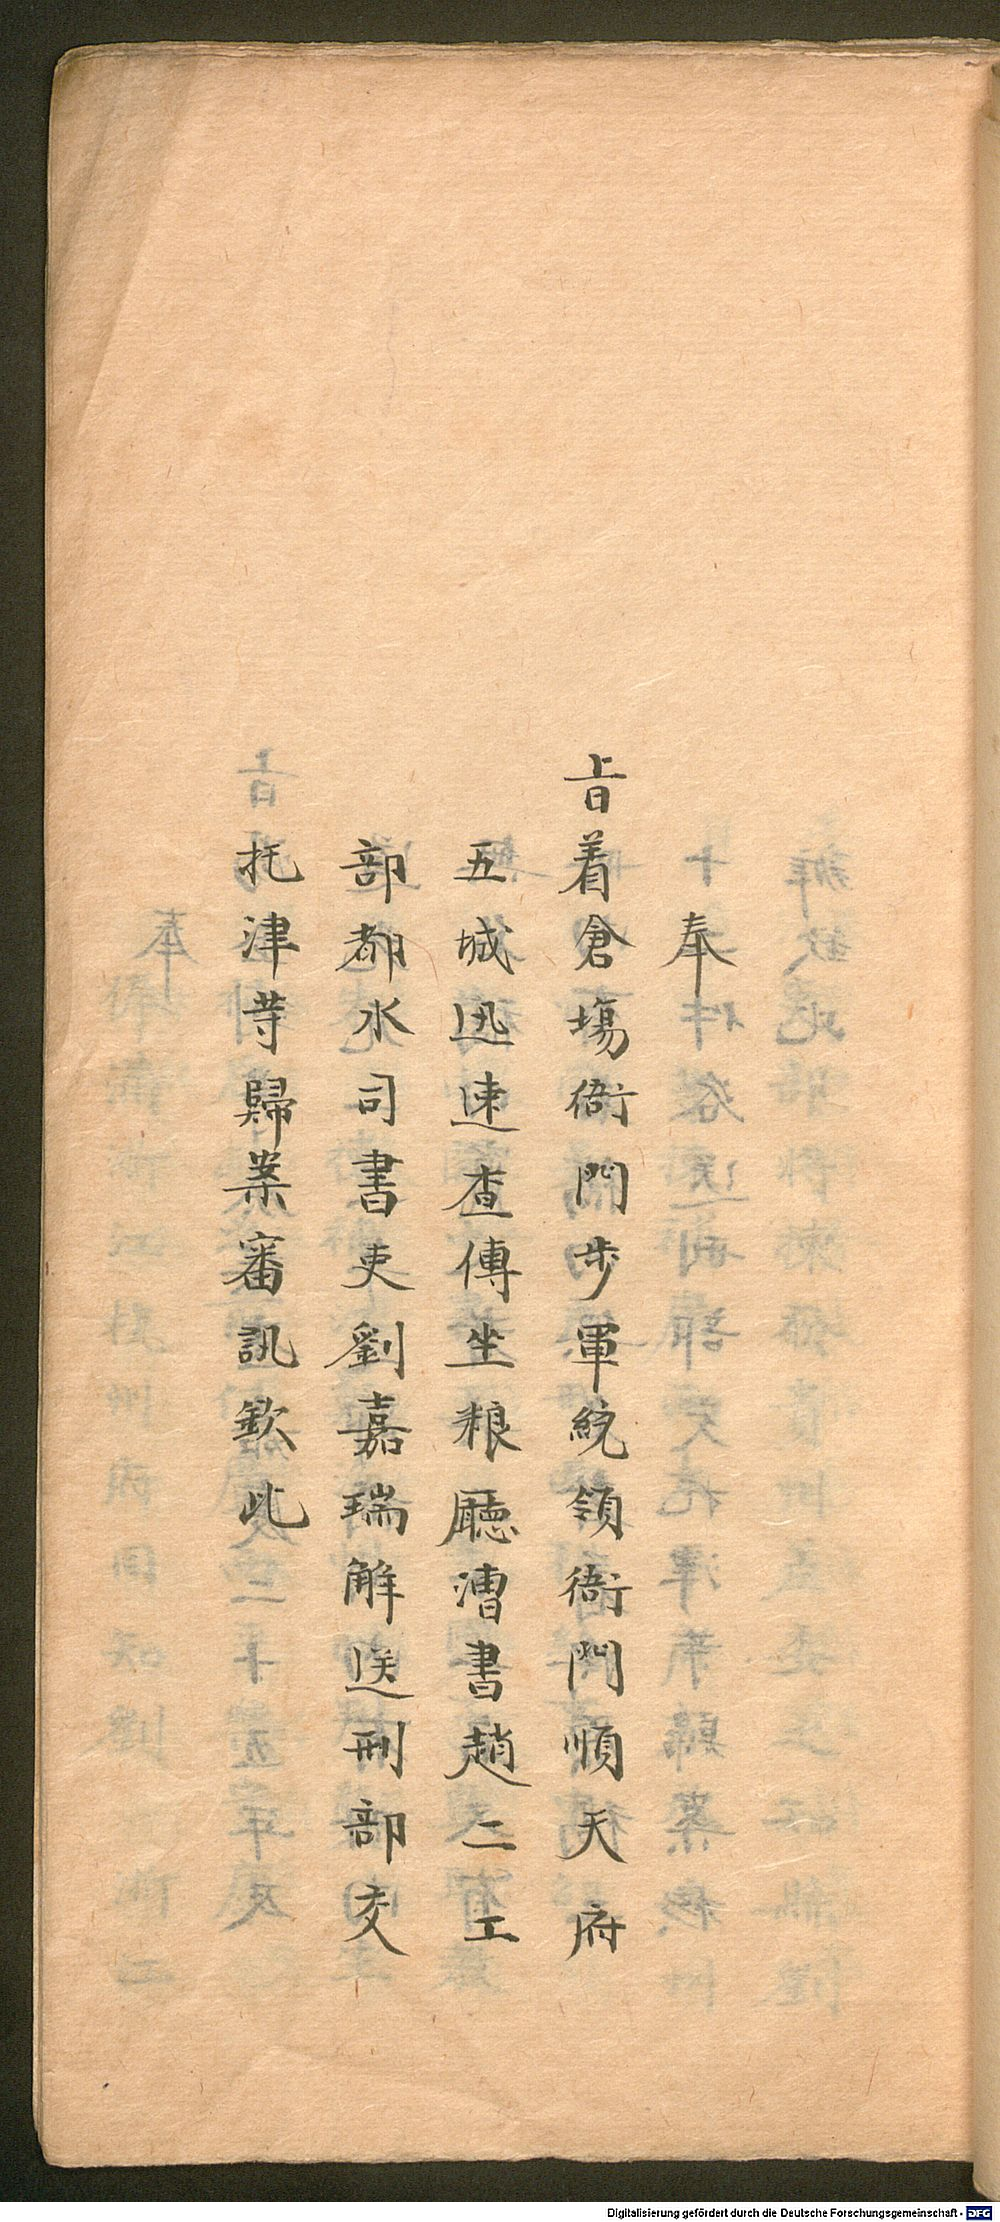 奉
旨着倉塲衙門步軍統領衙門順天府
五城迅速查傳坐粮廳漕書趙二工
部都水司書吏劉嘉瑞解送刑部交
托津等歸案審訊欽此
Digitalisierung gefördert durch die Deutsche Forschungsgemeinschaft - DFG